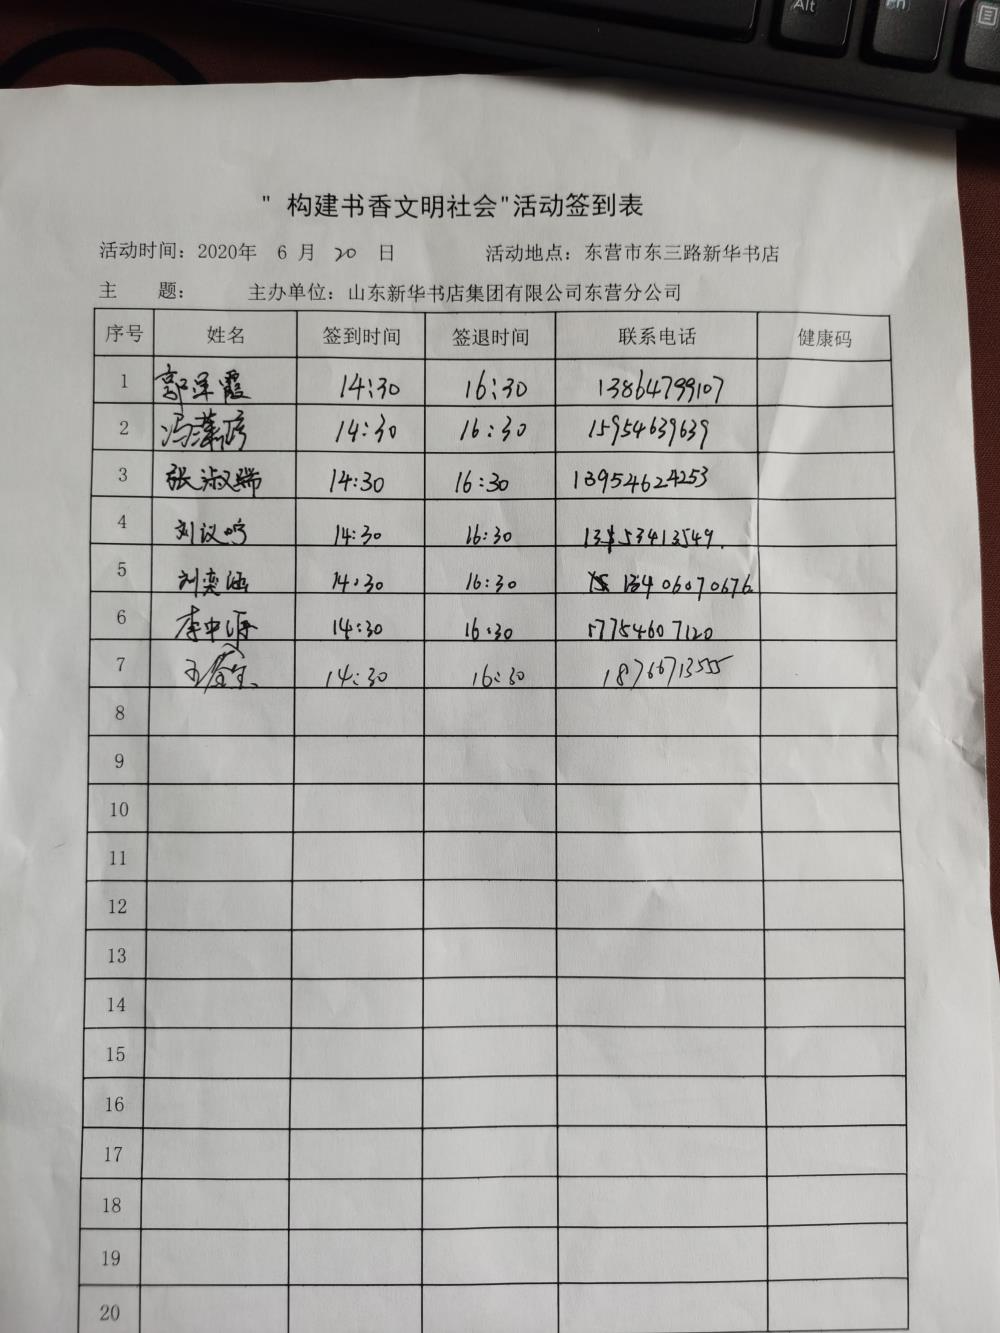 " 构建书香文明社会"活动签到表
活动时间：2020年 6 月 20 日 活动地点：东营市东三路新华书店
主 题： 主办单位：山东新华书店集团有限公司东营分公司
序号 姓名 签到时间 签退时间 联系电话 健康码
1 郭军霞 14:30 16:30 13864799107
2 冯 14:30 16:30 15954639639
3 张淑瑞 14:30 16:30 13954624253
4 刘议鸣 14:30 16:30
5 刘奕涵 14:30 16:30 13406070676
6 李中 14:30 16:30
7 王 14:30 16:30 18766713555
8
9
10
11
12
13
14
15
16
17
18
19
20
Alt